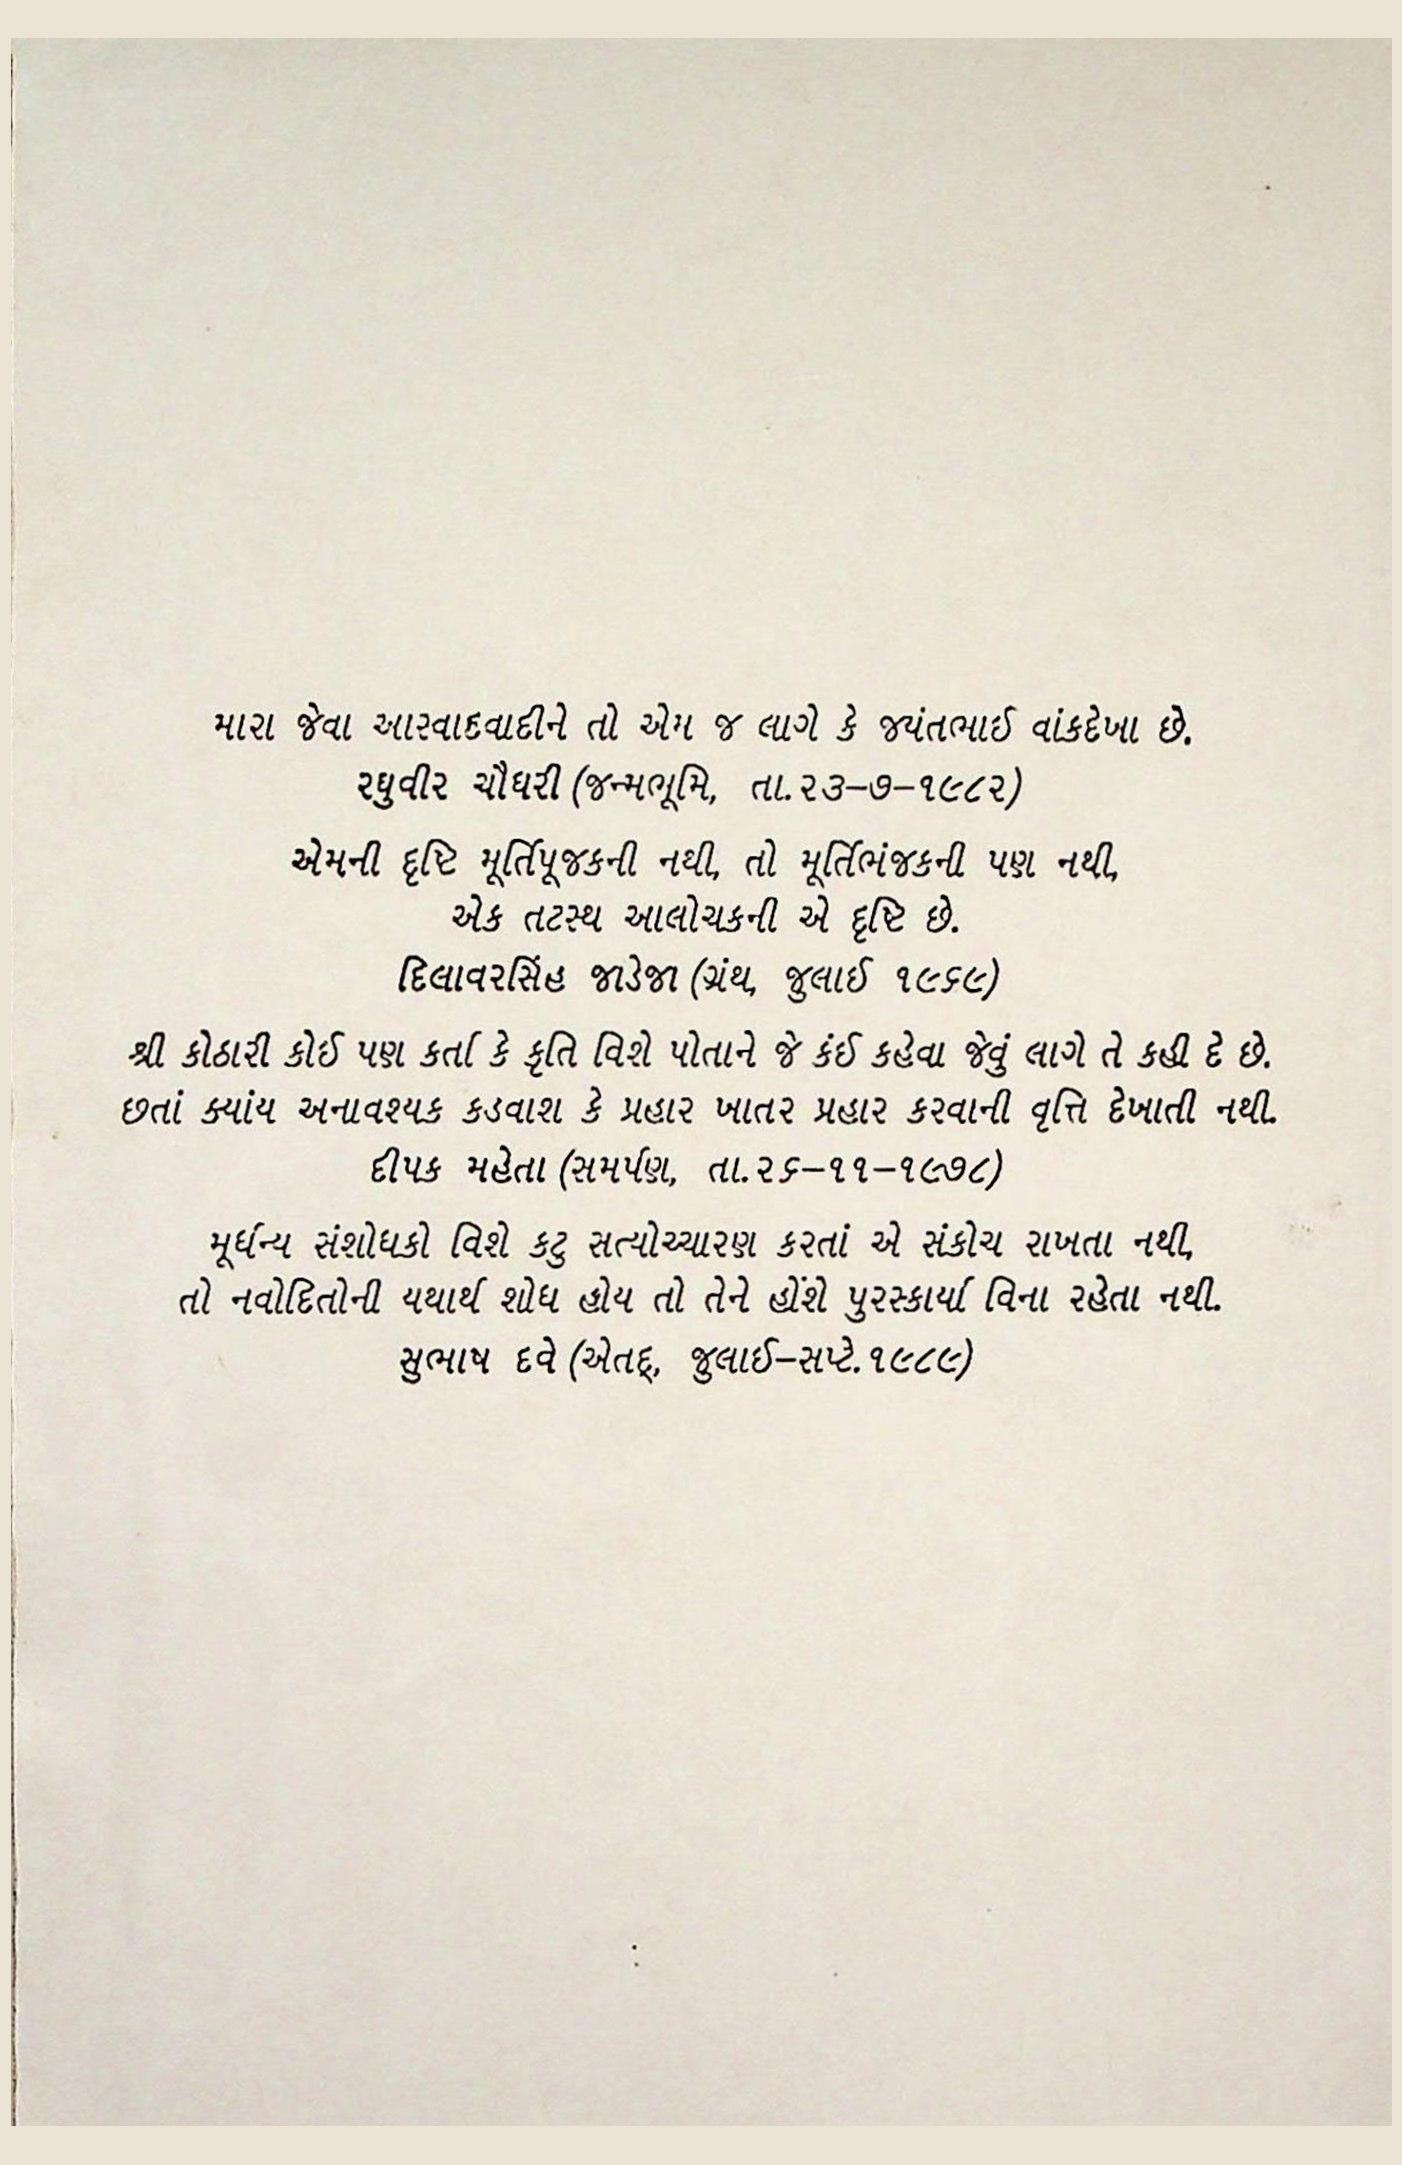 મારા જેવા આસ્વાદવાદીને તો એમ જ લાગે કે જયંતભાઈ વાંકદેખા છે.
રઘુવીર ચૌધરી (જન્મભૂમિ, તા. ૨૩–૭–૧૯૮૨)
એમની દૃષ્ટિ મૂર્તિપૂજકની નથી, તો મૂર્તિભંજકની પણ નથી,
એક તટસ્થ આલોચકની એ દૃષ્ટિ છે.
દિલાવરસિંહ જાડેજા (ગ્રંથ, જુલાઈ ૧૯૬૯)
શ્રી કોઠારી કોઈ પણ કર્તા કે કૃતિ વિશે પોતાને જે કંઈ કહેવા જેવું લાગે તે કહી દે છે.
છતાં ક્યાંય અનાવશ્યક કડવાશ કે પ્રહાર ખાતર પ્રહાર કરવાની વૃત્તિ દેખાતી નથી.
દીપક મહેતા (સમર્પણ, તા. ૨૬–૧૧–૧૯૭૮)
મૂર્ધન્ય સંશોધકો વિશે કટુ સત્યોચ્ચારણ કરતાં એ સંકોચ રાખતા નથી,
તો નવોદિતોની યથાર્થ શોધ હોય તો તેને હોંશે પુરસ્કાર્યા વિના રહેતા નથી.
સુભાષ દવે (એતદ્, જુલાઈ–સપ્ટે. ૧૯૮૯)